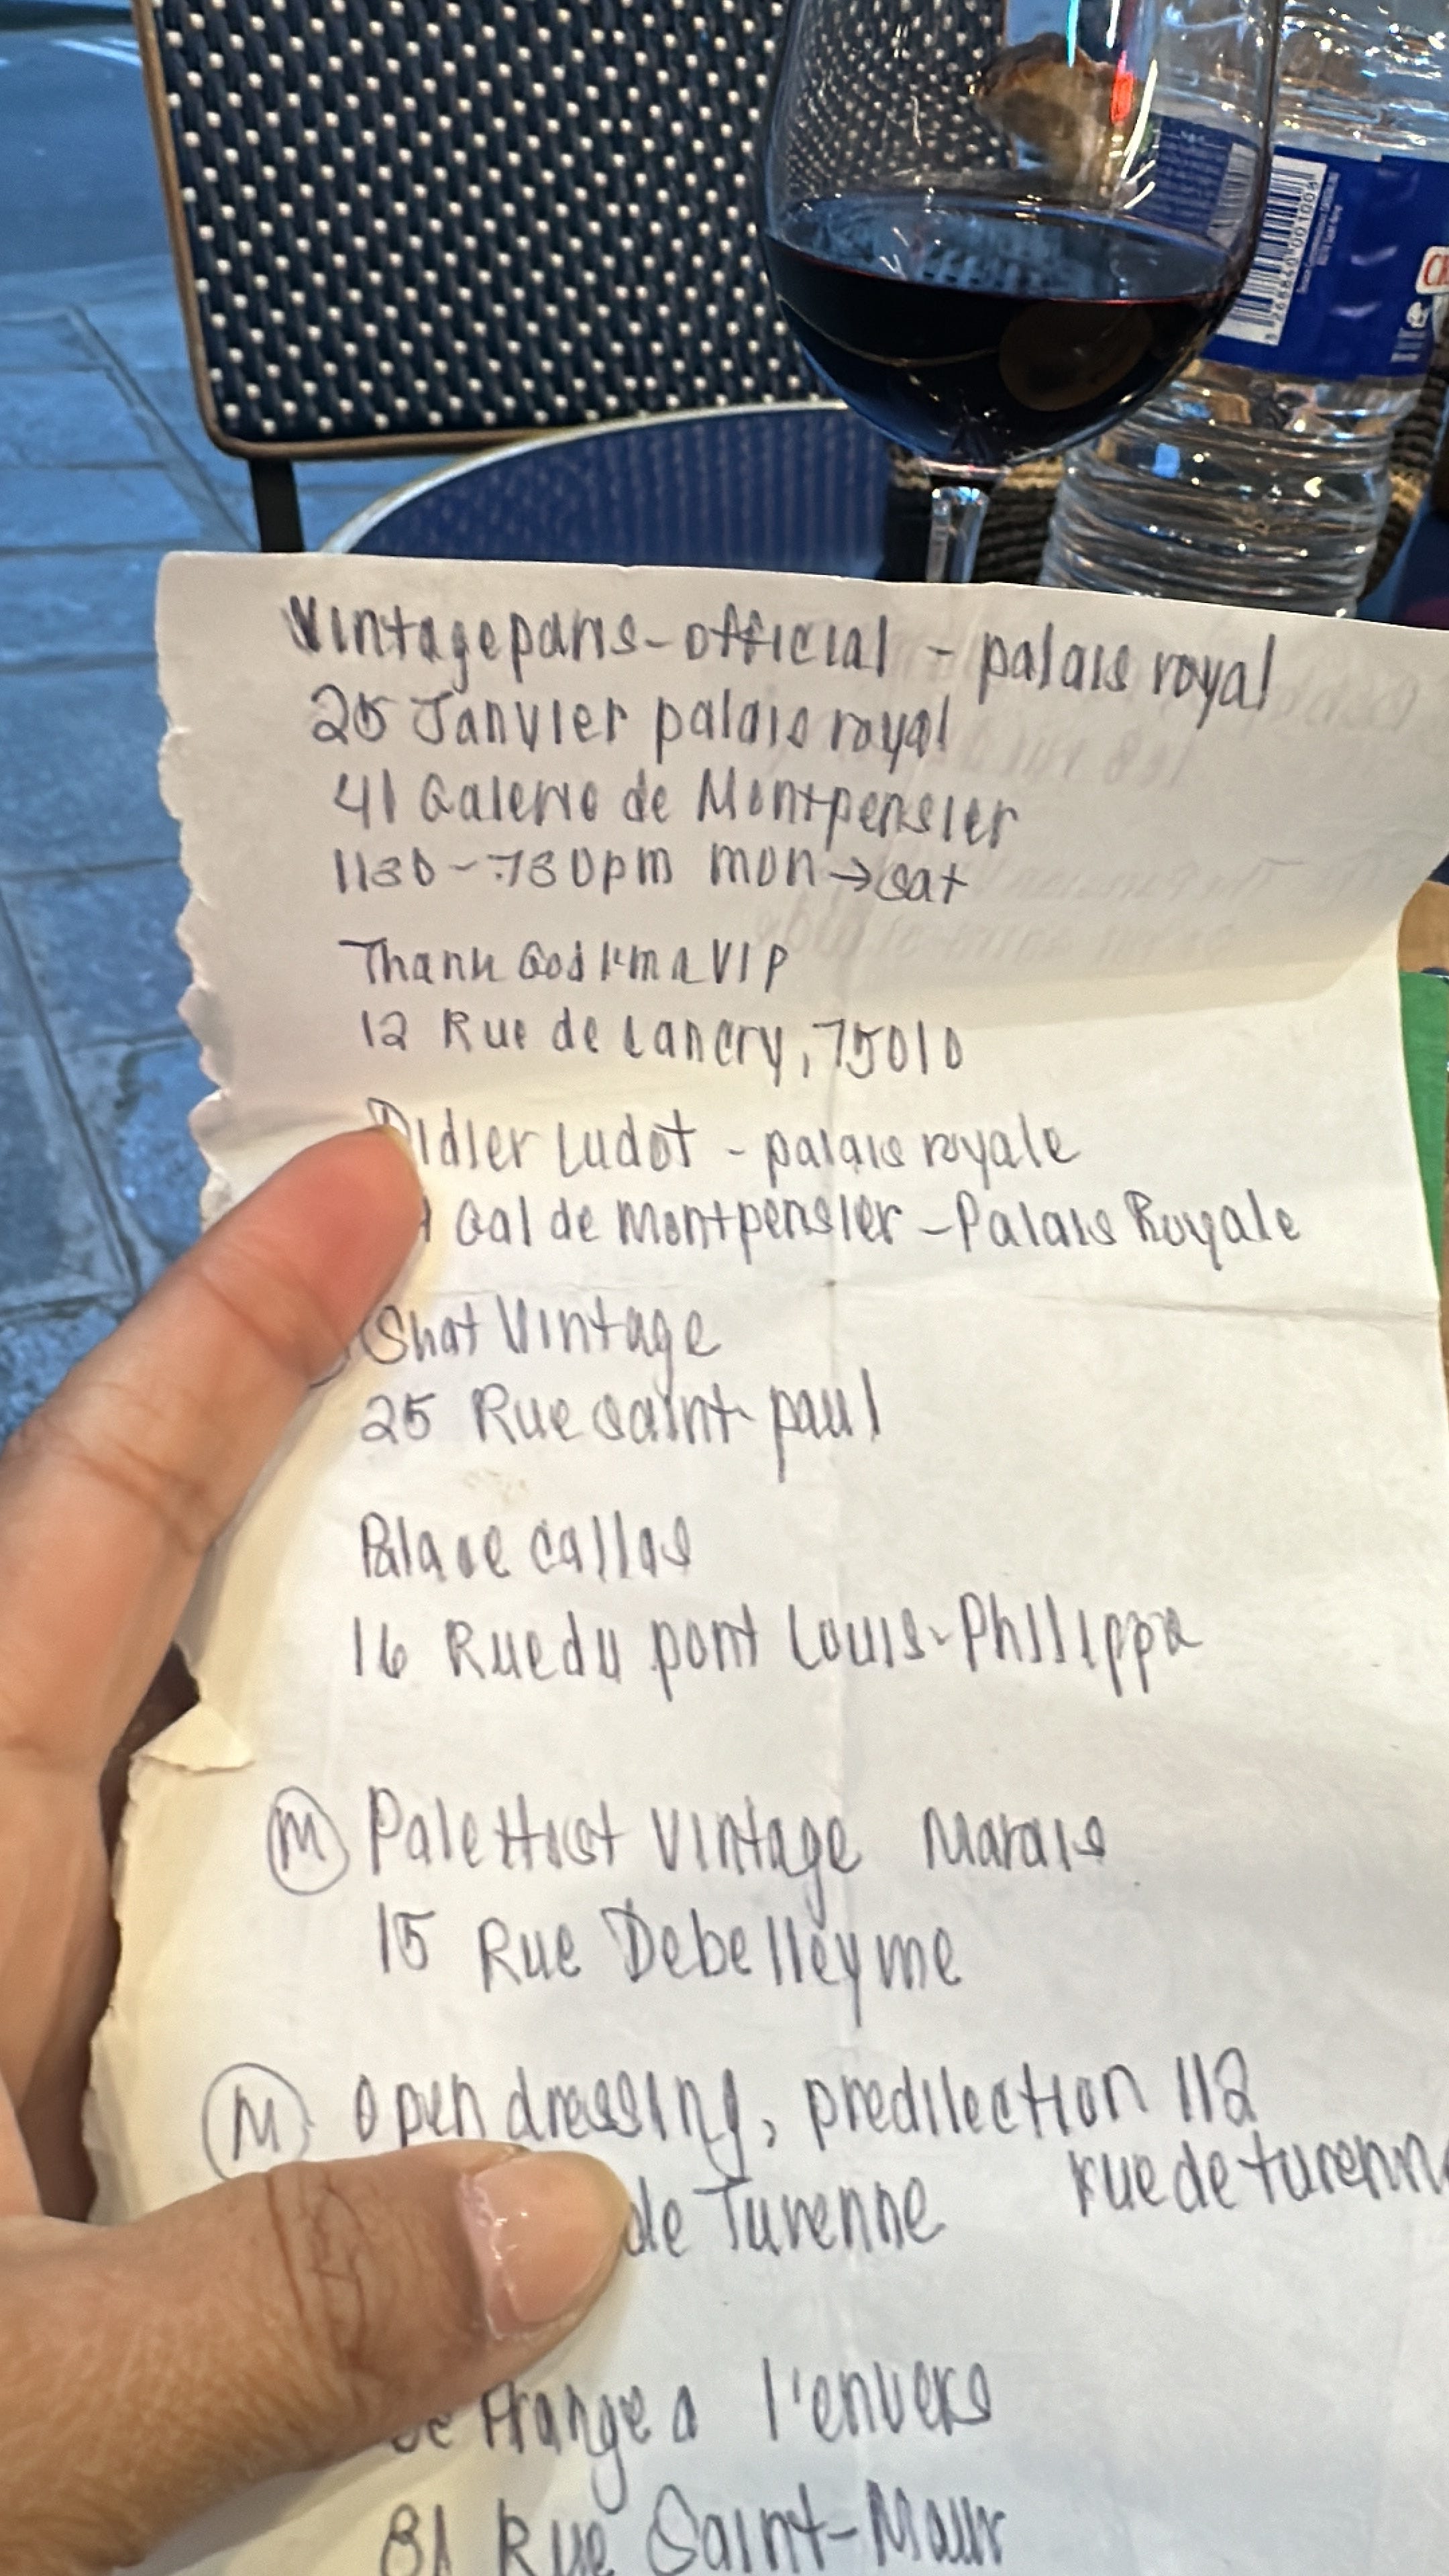 Vintageparis-official - palais royal
25 Janvier palais royal
41 Galerie de Montpensier
1130-730pm mon→sat
Thank God I'm a VIP
12 Rue de Lancry, 75010
Didier Ludot - palais royale
Gal de Montpensier - Palais Royale
Shot Vintage
25 Rue saint-paul
Palace callas
16 Rue du pont Louis-Philippe
M Palettist Vintage Marais
15 Rue Debelleyme
M Open dressing, predilection 112
rue de turenn
de Turenne
Frange a l'envers
81 Rue Saint-Maur